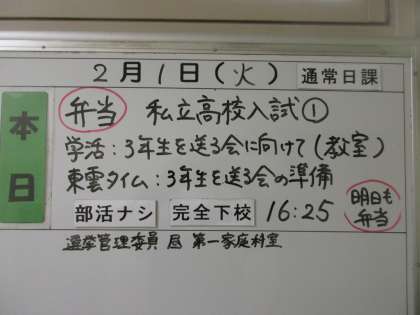 2月1日(火) 通常日課
本日
弁当 私立高校入試①
学活:3年生を送る会に向けて(教室)
東雲タイム:3年生を送る会の準備
部活ナシ 完全下校 16:25 明日も弁当
選挙管理委員 昼 第一家庭科室